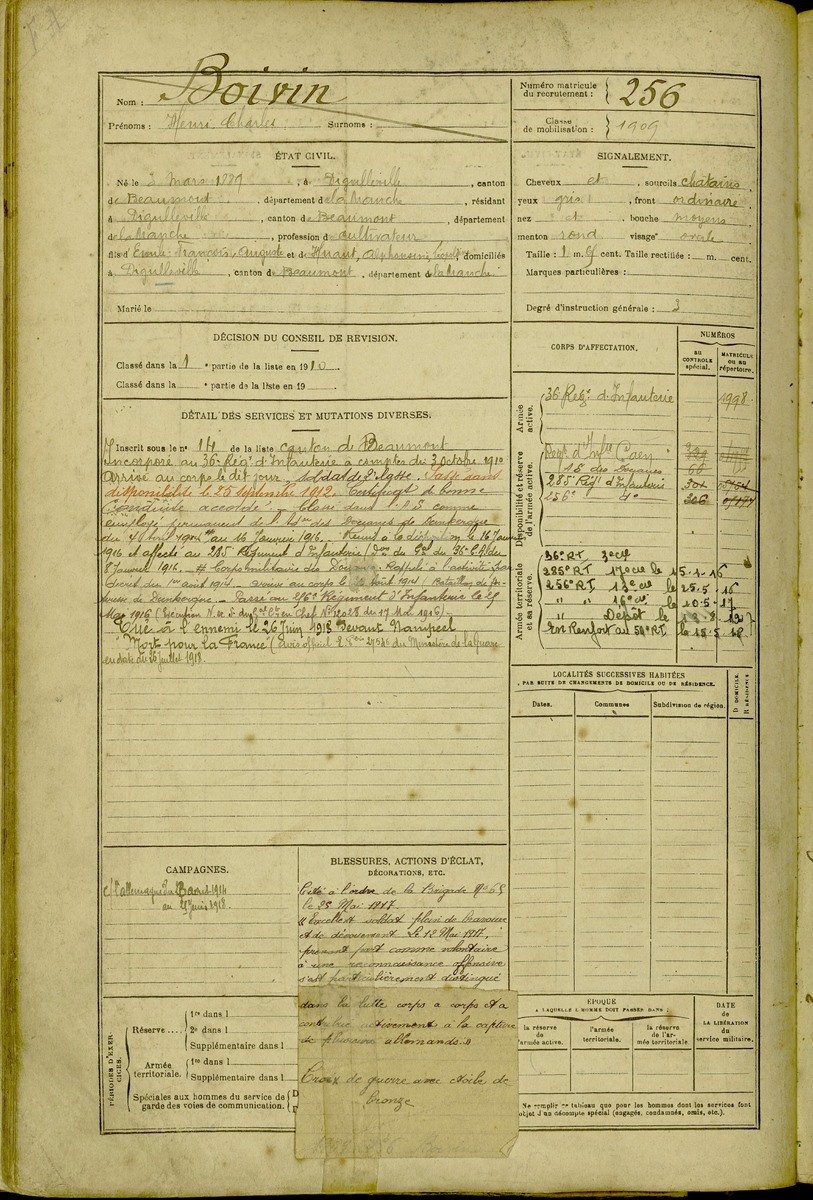 Nom : Boivin
Prénoms : Henri Charles Surnoms :
Numéro matricule
du recrutement : 256
Classe
de mobilisation : 1909
ÉTAT CIVIL.
Né le 3 Mars 1889, à Digulleville, canton
de Beaumont, département de la Manche, résidant
à Digulleville, canton de Beaumont, département
de la Manche, profession de cultivateur
fils d'Emile François Auguste et de Huaut, Alphonsine, domiciliés
à Digulleville, canton de Beaumont, département de la Manche
Marié le
SIGNALEMENT.
Cheveux et, sourcils chatains
yeux gris, front ordinaire
nez et, bouche moyens
menton rond visage ovale
Taille : 1 m. cent. Taille rectifiée : m. cent.
Marques particulières :
Degré d'instruction générale : 3
DÉCISION DU CONSEIL DE REVISION.
Classé dans la 1e partie de la liste en 1910.
Classé dans la e partie de la liste en 19
DÉTAIL DES SERVICES ET MUTATIONS DIVERSES.
Inscrit sous le n° 14 de la liste canton de Beaumont
Incorporé au 36e Régt d'Infanterie à compter du 3 octobre 1910
Arrivé au corps le dit jour, soldat de 2e classe. Passé dans
disponibilité le 25 septembre 1912. Certificat de bonne
conduite accordé. Classé dans comme
employé permanent de des Douanes de Dunkerque
du au 16 Janvier 1916. Remis à la disposition le 16 Janvier
1916 et affecté au 285 Régiment d'Infanterie du 36e C.A. du
8 Janvier 1916. # Corps militaire des Douanes Rappelé à l'activité
Décret du 1er août 1914 Arrivé au corps le août 1914 Bataillon de
de Dunkerque - Passé au 256e Régiment d'Infanterie le 25
Mai 1916 (Exécution N. de S. du Gal Ct en Chef N° 20028 du 17 Mai 1916)
Tué à l'ennemi le 26 Juin 1918 Devant Nampcel
"Mort pour la France" (avis officiel 27546 du Ministère de la Guerre
en date du 26 juillet 1918.
CORPS D'AFFECTATION.
NUMÉROS
au
CONTRÔLE
spécial.
MATRICULE
ou au
répertoire.
Armée
active.
36 Régt d'Infanterie 1998
Disponibilité et réserve
de l'armée active.
Dépôt d'Inf Caen
15 des Douanes 66
285 Régt d'Infanterie 301
256e do
Armée territoriale
et sa réserve.
36e RI 3e Cie
285e RI 17e Cie le 15.1.16
256e RI 13e Cie le 25.5.16
" " 16e Cie le 10.5.17
" Dépôt le
En Renfort au RI le 15.5.18
LOCALITÉS SUCCESSIVES HABITÉES
PAR SUITE DE CHANGEMENTS DE DOMICILE OU DE RÉSIDENCE.
Dates. Communes Subdivision de région. D DOMICILE. R RÉSIDENCE
CAMPAGNES.
c/ l'allemagne du août 1914
au Juin 1918
BLESSURES, ACTIONS D'ÉCLAT,
DÉCORATIONS, ETC.
Cité à l'ordre de la Brigade N° 65
le 25 Mai 1917.
"Excellent soldat plein de bravoure
et de dévouement. Le 12 Mai 1917,
prenant part comme volontaire
à une reconnaissance offensive
s'est particulièrement distingué
dans la lutte corps à corps et a
contribué activement à la capture
de plusieurs allemands."
Croix de guerre avec étoile de
bronze
PÉRIODES D'EXERCICES.
Réserve.... 1re dans l
2e dans l
Supplémentaire dans l
Armée
territoriale. 1re dans l
Supplémentaire dans l
Spéciales aux hommes du service de
garde des voies de communication. D
EPOQUE
A LAQUELLE L'HOMME DOIT PASSER DANS :
la réserve
de
l'armée active.
l'armée
territoriale.
la réserve
de l'armée territoriale
DATE
de
LA LIBÉRATION
du
service militaire.
Ne remplir ce tableau que pour les hommes dont les services font
objet d'un décompte spécial (engagés, condamnés, omis, etc.).